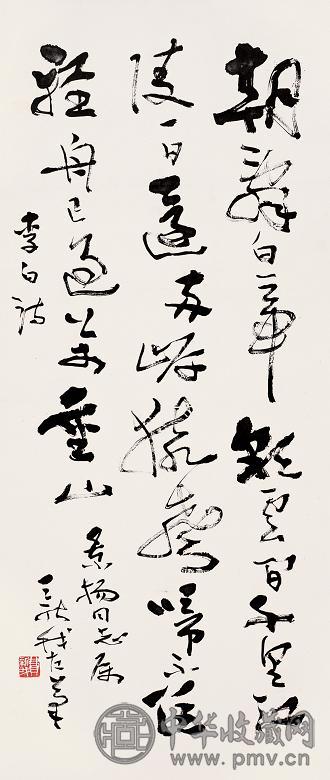 朝辭白帝彩雲間千里江
陵一日還兩岸猿聲啼不住
輕舟已過萬重山
李白詩
景揚同志属
費新我左筆
中华收藏网
www.pmv.cn